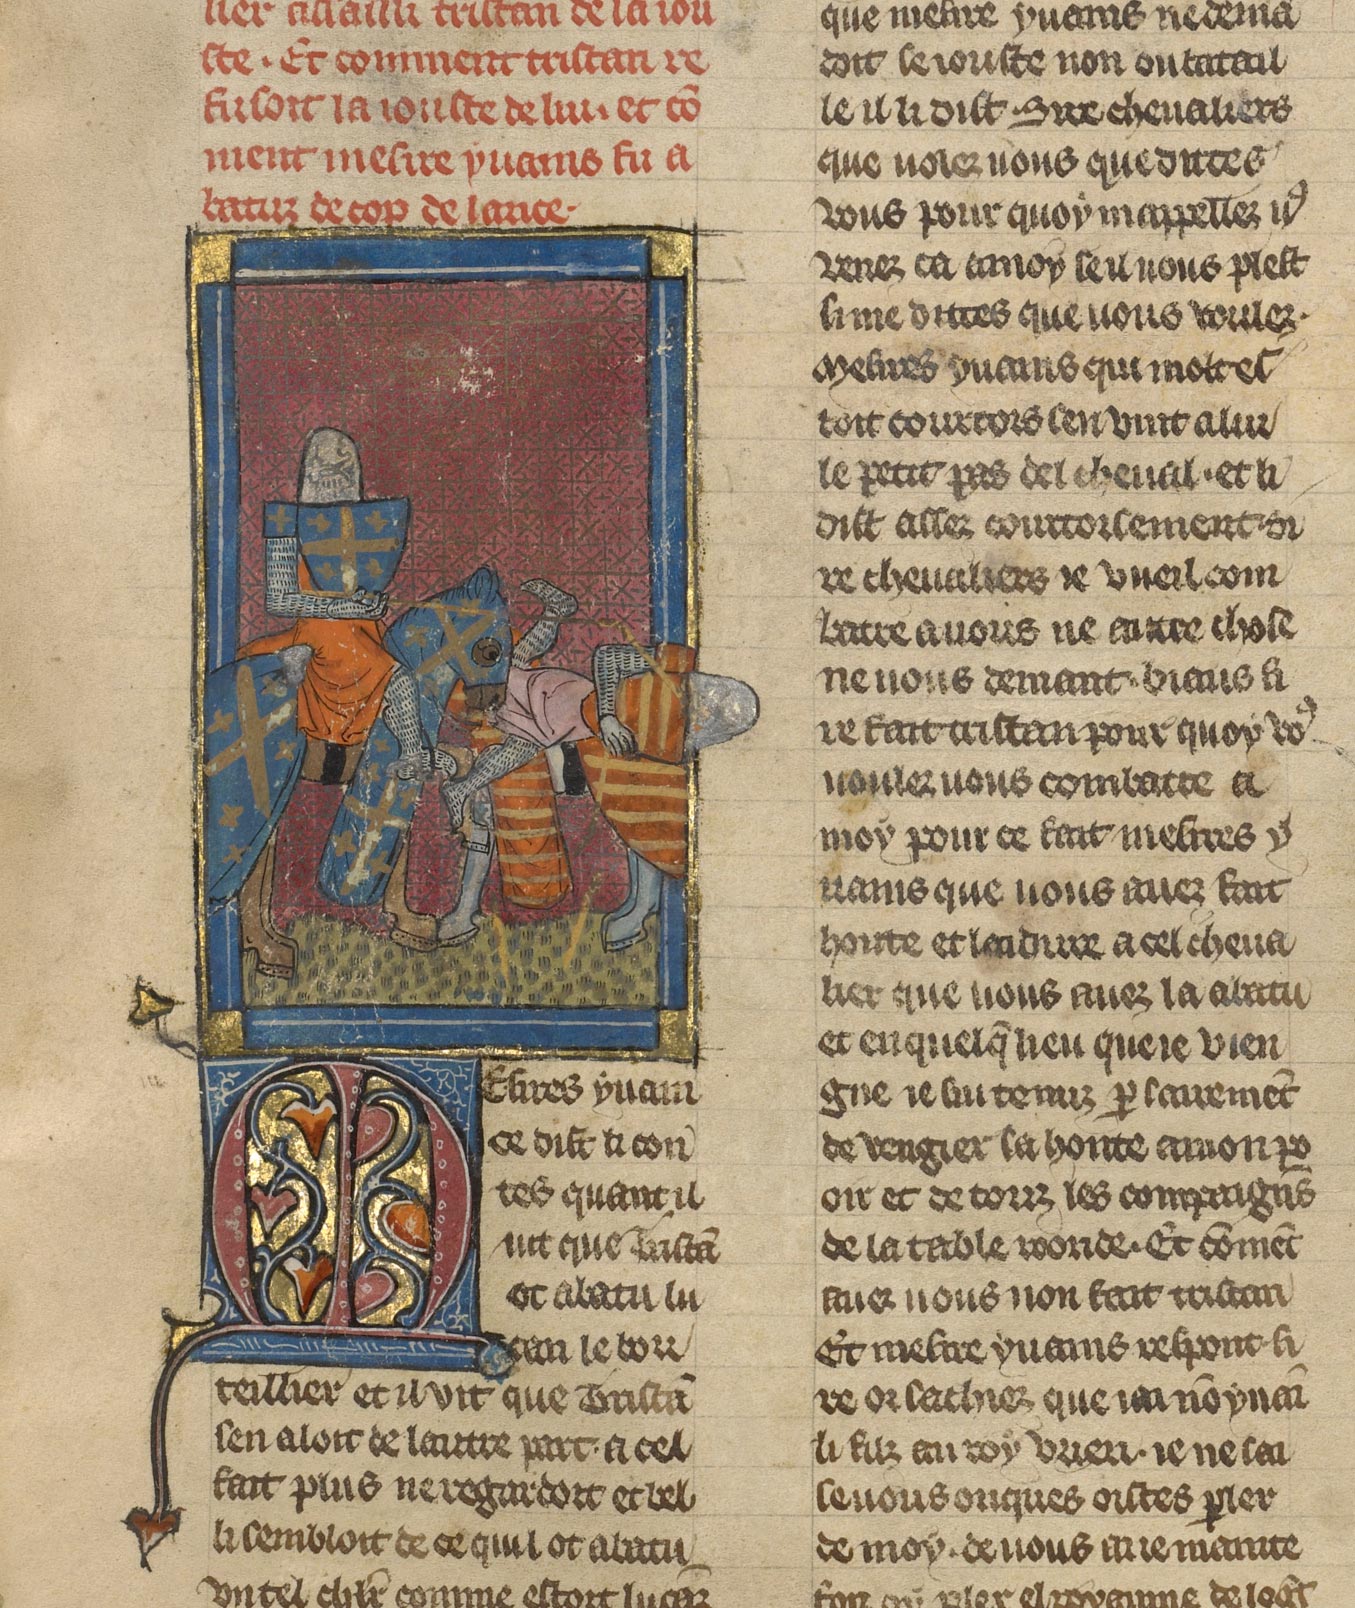 lier assailli tristan de la iou
ste. Et comment tristan re
fusoit la iouste de lui. et cō
ment mesire yuains fu a
batuz de cop de lance.
Esires yuain
ce dist li con
tes quant il
uit que tristā
ot abatu lu
can le bou
teillier et il vit que Tristā
sen aloit de lautre part. a cel
fait plus ne regardoit et bel
li sembloit de ce quil ot abatu
vn tel chlr comme estoit
que mesire yuains ne demā
doit se iouste non ou batail
le il li dist. Sire cheualiers
que uolez uous que dittes
vous pour quoy mappellez uꝰ
venez ca a moy se il uous plest
si me dittes que uous voulez.
Mesires yuains qui molt es
toit courtois sen vint a lui
le petit pas del cheual. et li
dist assez courtoisement. Si
re cheualiers ie vueil com
batre a uous ne autre chose
ne uous demant. biaus si
re fait tristan pour quoy voꝰ
uoulez uous combatre a
moy pour ce fait mesires y
uains que uous auez fait
honte et laidure a cel cheua
lier que uous auez la abatu
et en quelq̄ lieu que ie vien
gne ie sui tenuz ꝑ sairemēt
de vengier sa honte a mon po
oir et de touz les compaignōs
de la table roonde. Et cōmēt
auez uous non fait tristan
Et mesire yuains respont. si
re or sachiez que iai nō yuaī
li filz au roy vrien. ie ne sai
se uous onques oistes ꝑler
de moy. de uous ai ie mainte
foiz oy ꝑler el royaume de